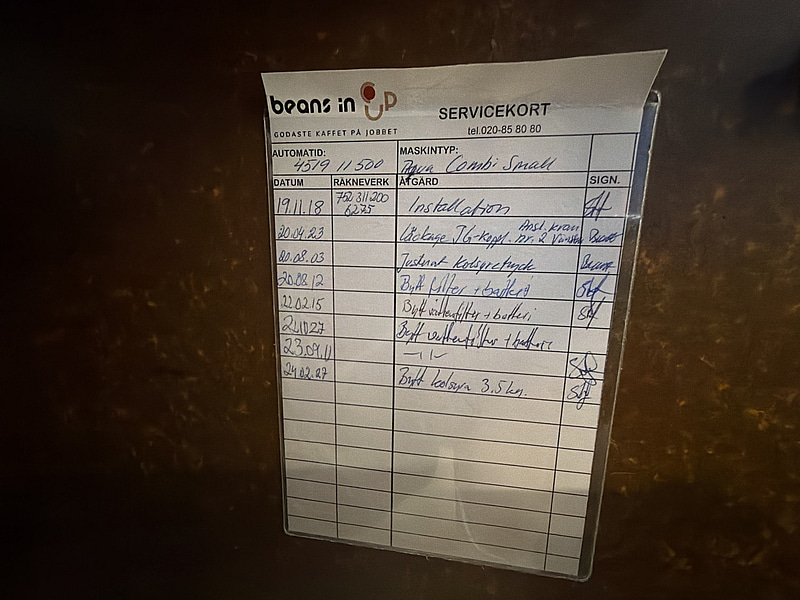 beans in cup
GODASTE KAFFET PÅ JOBBET
SERVICEKORT
tel.020-85 80 80
AUTOMATID:
4519 11500
MASKINTYP:
Aqua Combi Small
DATUM RÄKNEVERK ÅTGÄRD SIGN.
19.11.18 752 311200 6275 Installation
20.04.23 Läckage JG-koppl. Ansl. kran nr. 2
20.08.03 Justerat kolsyretryck
20.08.12 Bytt filter + batteri
22.02.15 Bytt vattenfilter + batteri
Bytt vattenfilter + batteri
23.09.11 —11—
24.02.27 Bytt kolsyra 3,5 kg.